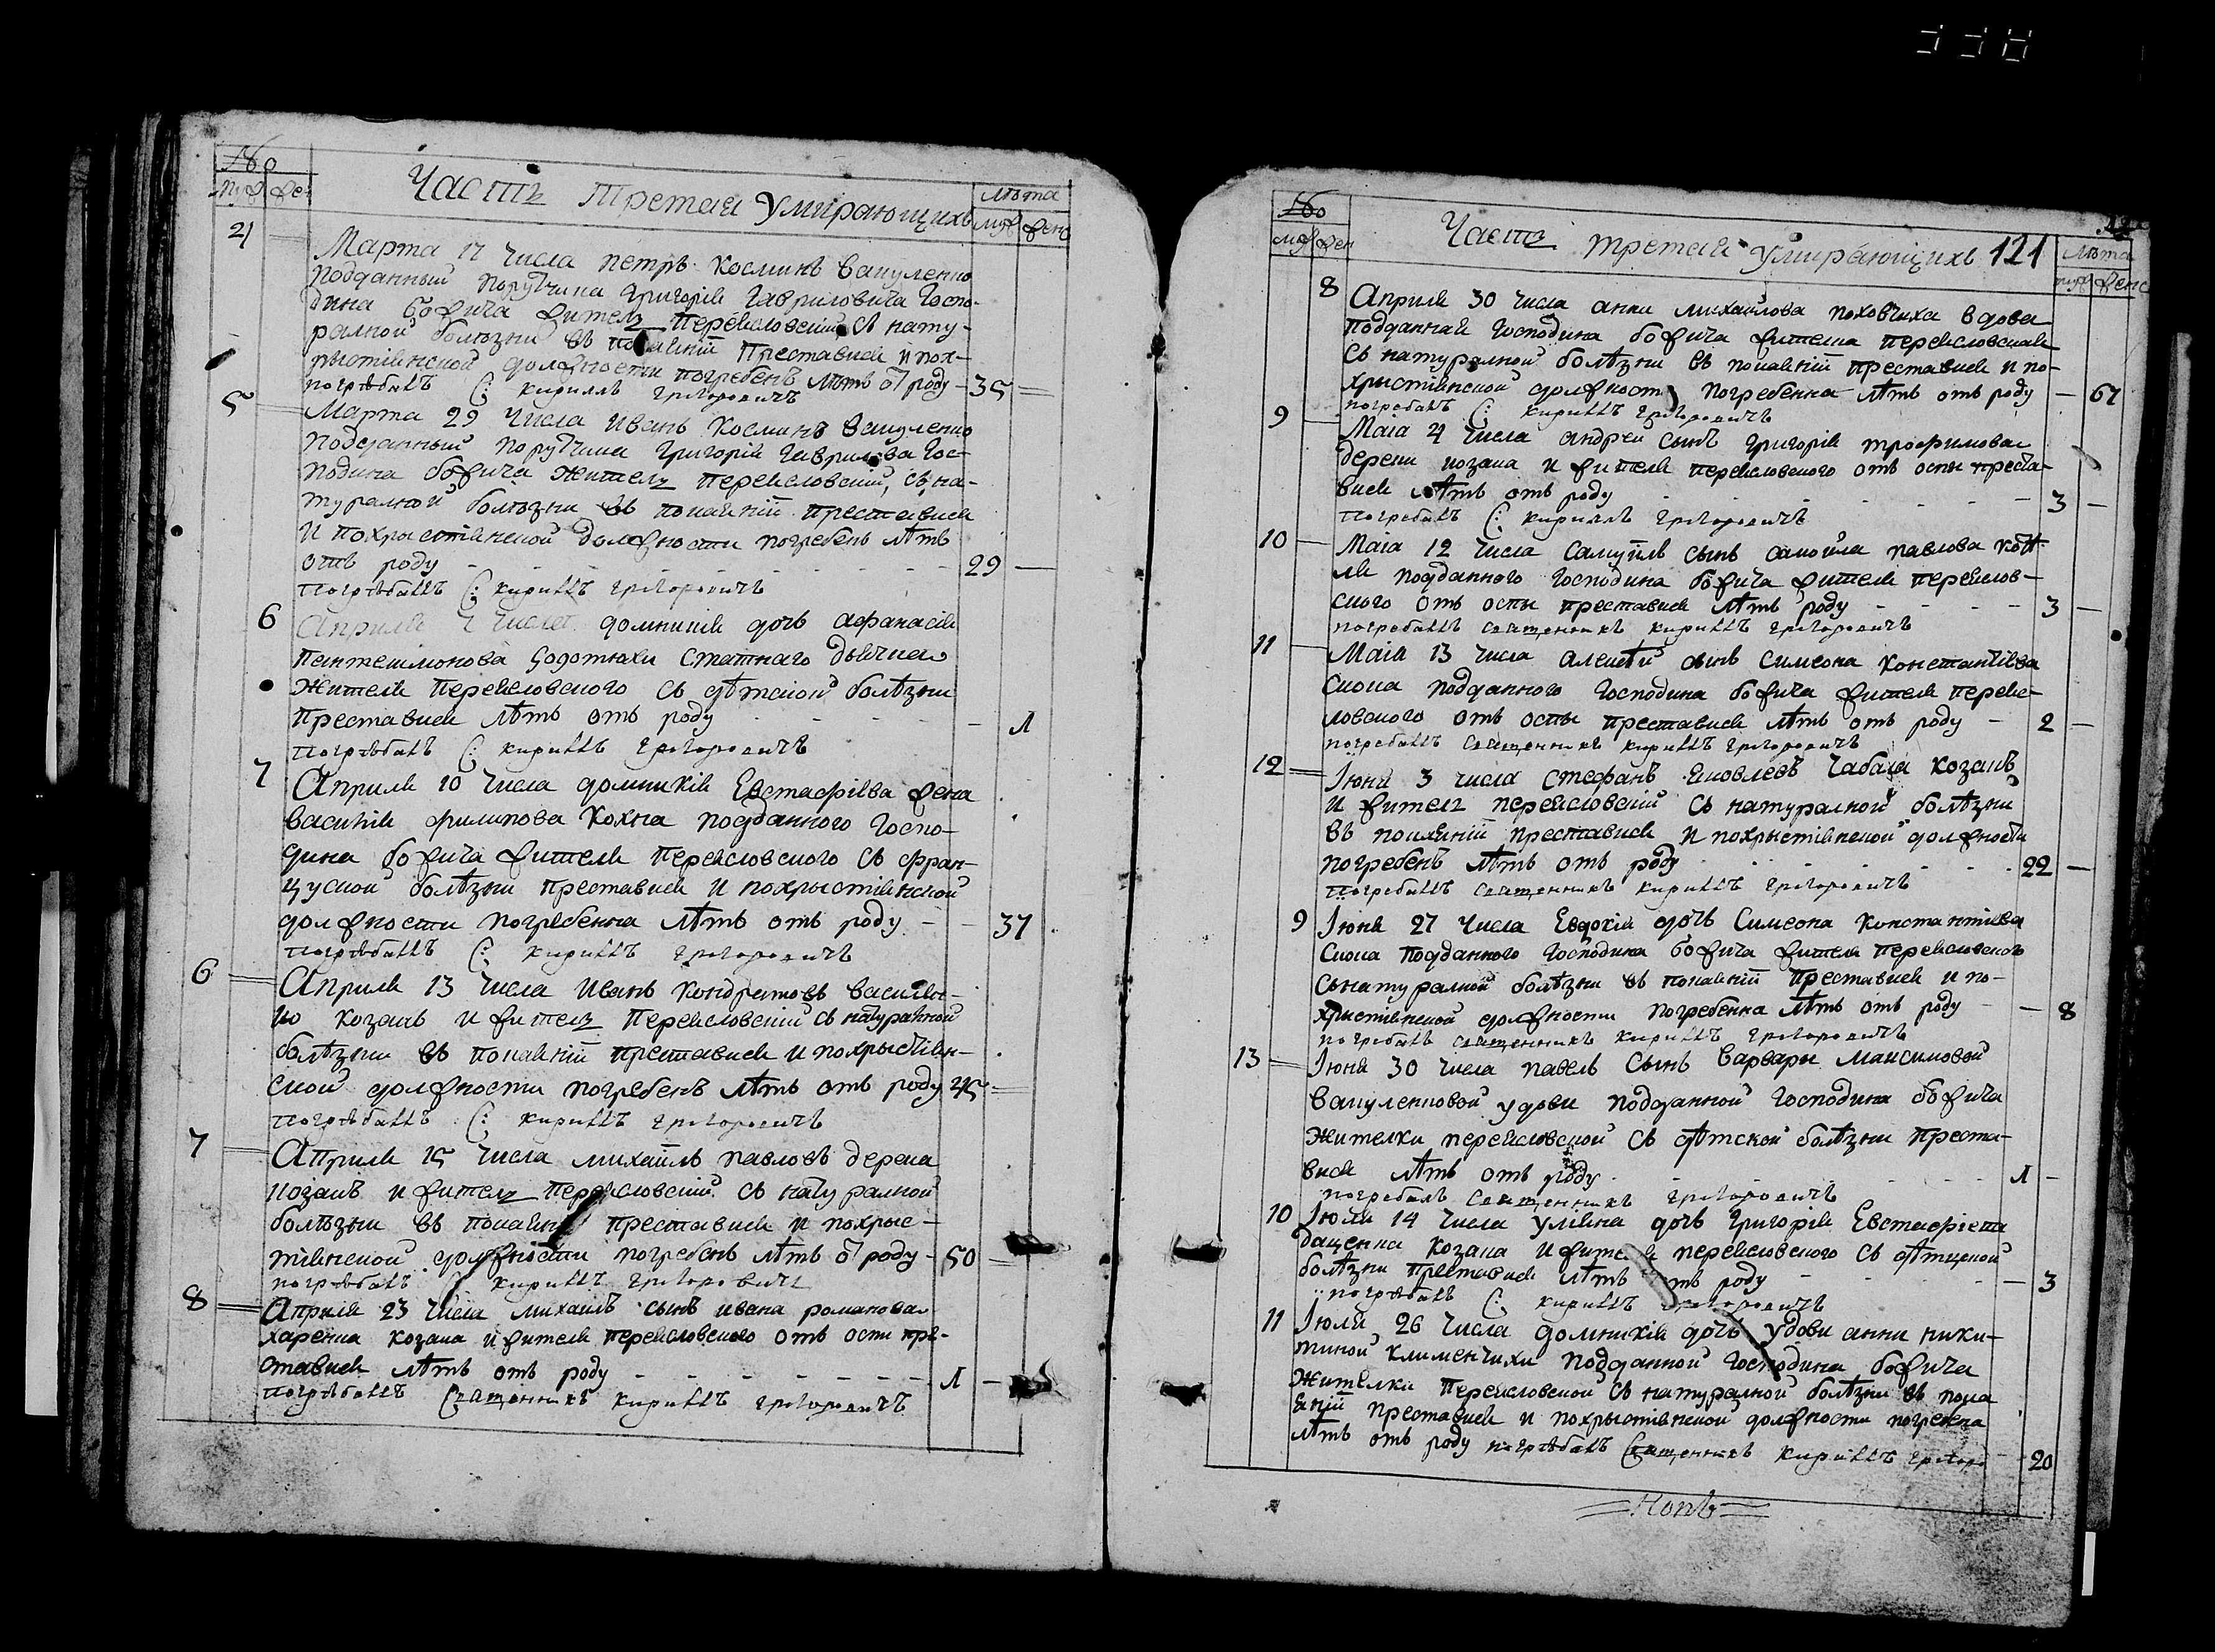 No
муж жен
Часть третая умирающихъ
лѣта
муж жен
4
Марта 17 числа петръ косминъ вакуленко
подданный порутчика григорія гавриловича госпо-
дина божича житель переясловский съ нату-
ралной болѣзни въ покаянии преставися и пох-
рыстіянской должности погребенъ лѣтъ от роду - 35
погрѣбалъ С: кириллъ григоровичъ
5
Марта 29 числа иванъ косминъ вакуленко
подданный порутчика григорія гаврилова гос-
подина божича житель переясловский, съ на-
туралной болѣзни въ покаянии преставися
и похрыстіянской должности погребенъ лѣтъ
отъ роду - 29
погрѣбалъ С: кириллъ григоровичъ
6
Априля числа домникія дочь афанасія
пантелимонова
жителя переясловского съ дѣтской болѣзни
преставися лѣтъ отъ роду - 1
погрѣбалъ С: кириллъ григоровичъ
7
Априля 10 числа домникія Евстафіева жена
василія филипова кохна подданного госпо-
дина божича жителя переясловского съ фран-
цуской болѣзни преставися и похрыстіянской
должности погребенна лѣтъ отъ роду - 37
погрѣбалъ С: кириллъ григоровичъ
6
Априля 13 числа иванъ кондратовъ василен-
ко козакъ и житель переясловский съ натуралной
болѣзни въ покаянии преставися и похрыстіян-
ской должности погребенъ лѣтъ отъ роду 45
погрѣбалъ С: кириллъ григоровичъ
7
Априля 15 числа михаилъ павловъ дерека
козакъ и житель переясловский съ натуралной
болѣзни въ покаянии преставися и похрыс-
тіянской должности погребенъ лѣтъ от роду - 50
погрѣбалъ С: кириллъ григоровичъ
8
Априля 23 числа михаилъ сынъ ивана романова
харенка козака и жителя переясловского отъ оспи пре-
ставися лѣтъ отъ роду - 1
погрѣбалъ Священникъ кириллъ григоровичъ
No
муж жен
Часть третая умирающихъ 121
лѣта
муж жен
8
Априля 30 числа анна михайлова вдова
подданная господина божича жителка переясловская
съ натуралной болѣзни въ покаянии преставися и по-
хрыстіянской должности погребенна лѣтъ отъ роду - 67
погребалъ С: кириллъ григоровичъ
9
Маіа 4 числа андрей сынъ григорія трофимова
дереки козака и жителя переясловского отъ оспы преста-
вися лѣтъ отъ роду - 3
погребалъ С: кириллъ григоровичъ
10
Маіа 12 числа самуйлъ сынъ самойла павлова
подданного господина божича жителя переяслов-
ского отъ оспы преставися лѣтъ роду - 3
погребалъ священникъ кириллъ григоровичъ
11
Маіа 13 числа алексѣй сынъ симеона константіева
скока подданного господина божича жителя перея-
словского отъ оспы преставися лѣтъ отъ роду - 2
погребалъ священникъ кириллъ григоровичъ
12
Іюня 3 числа стефанъ яковлевъ чабала козакъ
и житель переясловский съ натуралной болѣзни
въ покаянии преставися и похрыстіянской должности
погребенъ лѣтъ отъ роду 22
погребалъ священникъ кириллъ григоровичъ
9
Іюня 27 числа Евдокія дочь симеона константіева
скока подданного господина божича жителя переясловского
сънатуралной болѣзни въ покаянии преставися и по-
хрыстіянской должности погребенна лѣтъ отъ роду - 8
погребалъ священникъ кириллъ григоровичъ
13
Іюня 30 числа павелъ сынъ варвары максимовой
вакуленковой удови подданной господина божича
жителки переясловской съ дѣтской болѣзни преста-
вися лѣтъ отъ роду 1
погребалъ священникъ григоровичъ
10
Іюля 14 числа уліяна дочь григорія Евстафіева
козака и жителя переясловского съ дѣтцкой
болѣзни преставися лѣтъ отъ роду - 3
погрѣбалъ С: кириллъ григоровичъ
11
Іюля 26 числа домникія дочь удови анни ники-
тиной клименчихи подданной господина божича
жителки переясловской съ натуралной болѣзни въ пока
янии преставися и похрыстіянской должности погребена
лѣтъ отъ роду погрѣбалъ Священникъ кириллъ григоро 20